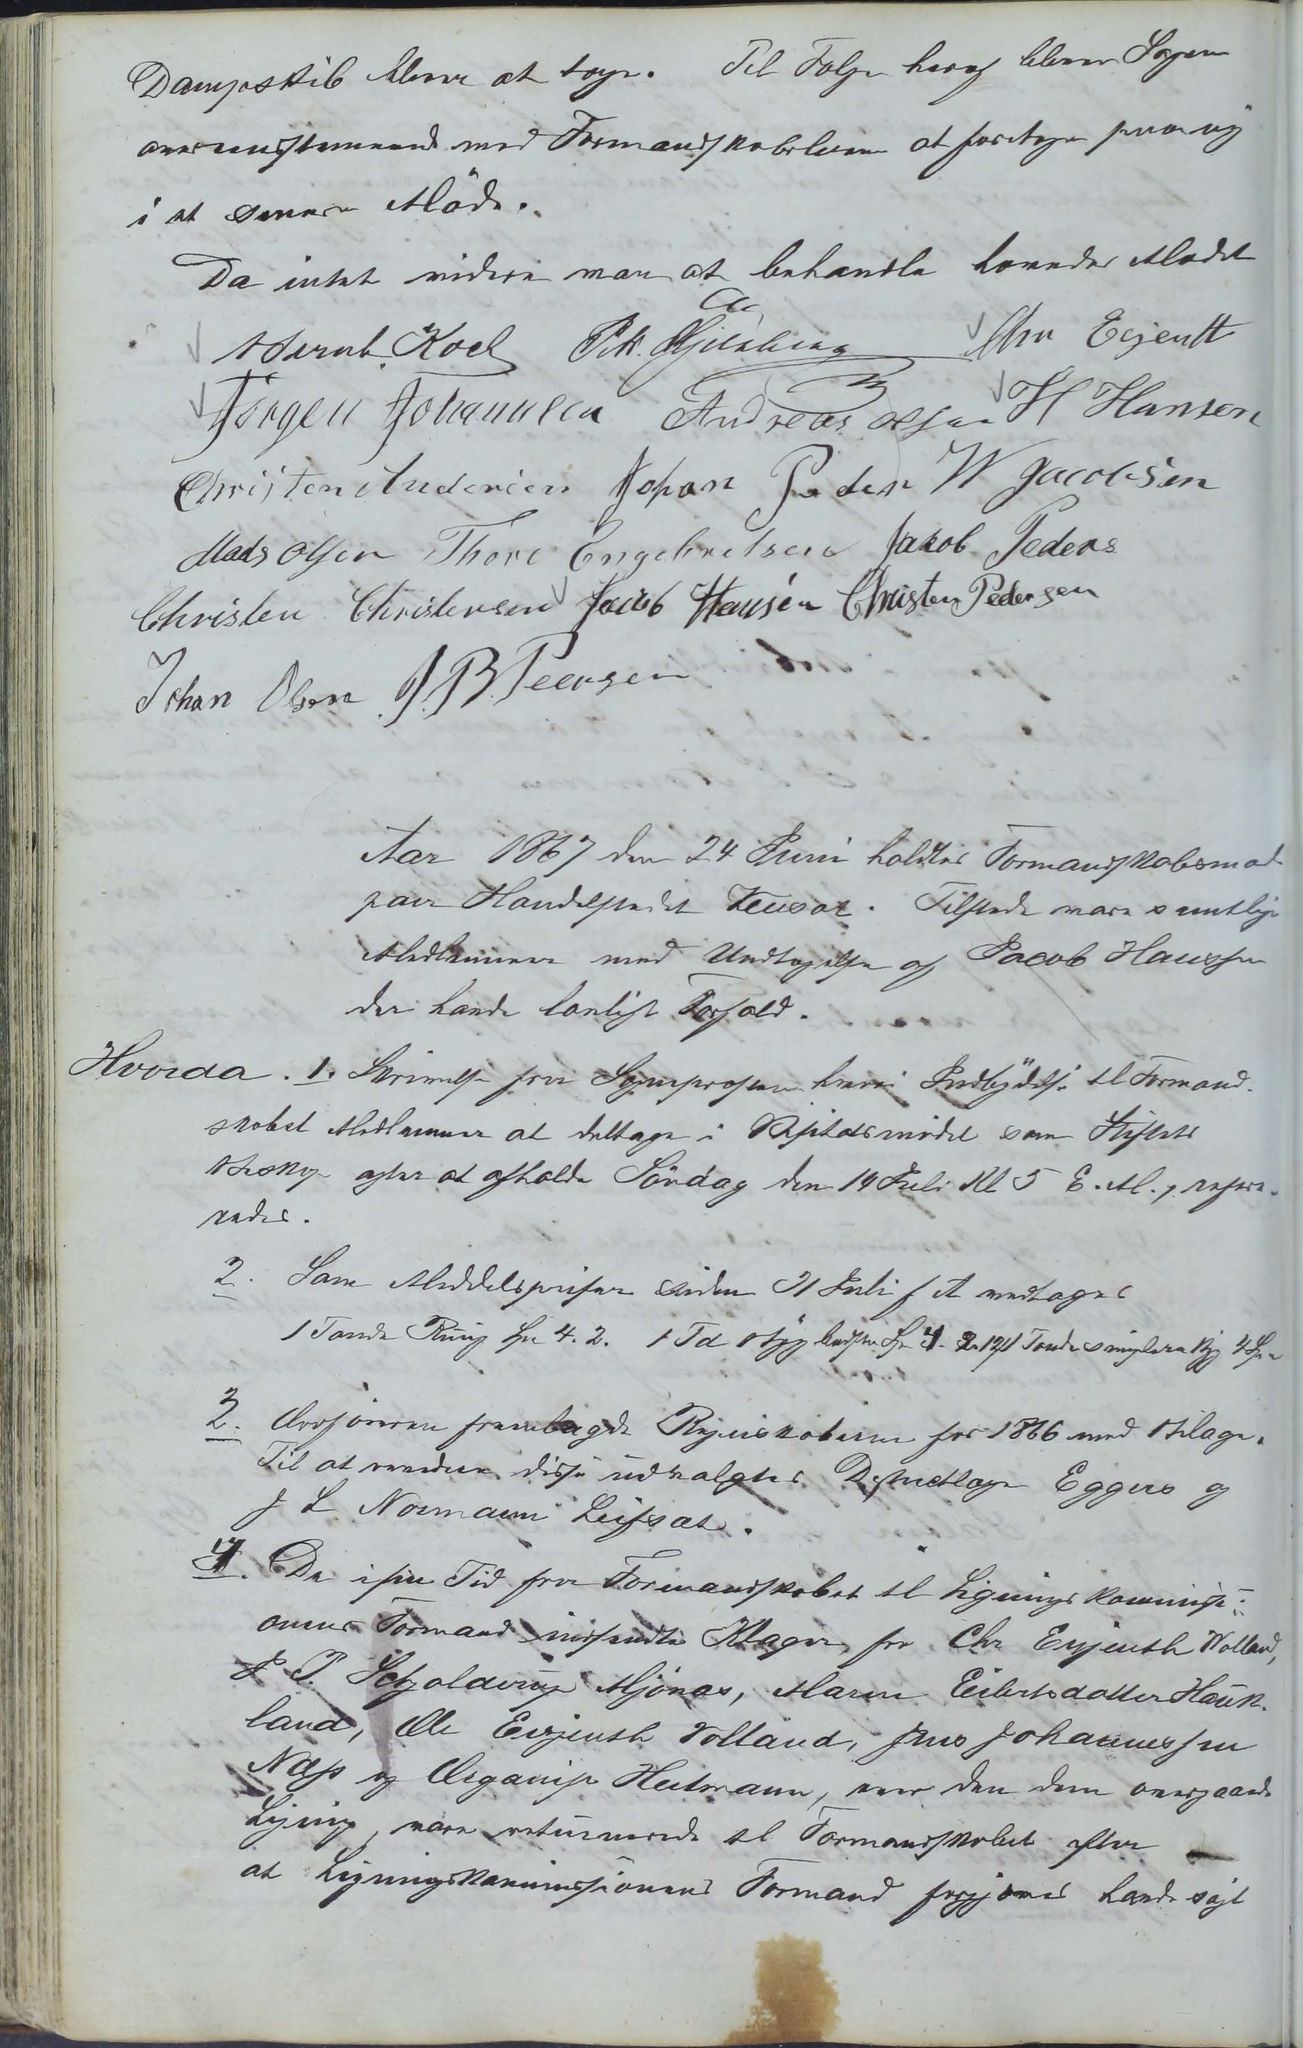 Dampskib bliver at söge. Til Fölge heraf bliver Sagen
overeensstemmende med Formandskabsloven at foretage paa ny
i et senere Möde.
Da intet videre var at behandle hævedes Mödet
Bernt Koch Chr Eijenth
Jörgen Johannsen Andreas Olsen H Hansen
Christen Andersen Johan Peder W Jacobsen
Mads Olsen Thore Engebretsen Jakob Peders
Christen Christensen Jacob Hansen Christen Pedersen
Johan Olsen J. B. Peersen
Aar 1867 den 24 Juni holdtes Formandskabsmöde
paa Handelstedet Reusöe. Tilstede vare samtlige
Medlemmer med Undtagelse af Jacob Hanssen
der havde lovligt Forfald.
Hvorda. 1. Skrivelse fra Sognepræsten hvori Indbydelse til Formand-
skabets Medlemmer at deltage i Visitatsmödet som Stiftets
Biskop agter at afholde Söndag den 14 Juli Kl 5 E. M., refere-
redes.
2. Som Middelspriser siden 21 Juli f A vedtoges
1 Tönde Rug Sp 4. 2. 1 Td Byg bedste Sp 4. 1 Tönde ringere Byg 4 Sp
3. Ordföreren fremlagde Regnskaberne for 1866 med Bilage.
Til at revidere disse udvalgtes Distriktslæge Eggers og
J L Normann Leifsat.
4. De i sin Tid fra Formandskabet til Lignings kommissi-
onens Formand indsendte Klager fra Chr Eijenth Volland,
J P. Schjolderup Mjönæs, Maren Eilertsdatter Hauk-
land, Ole Eijenth Volland, Jens Johannessen
Naps og Organist Heitmann, over den dem overgaaede
Ligning, vare returnerede til Formandskabet efter
at Ligningskommissionens Formand forgjæves havde sögt